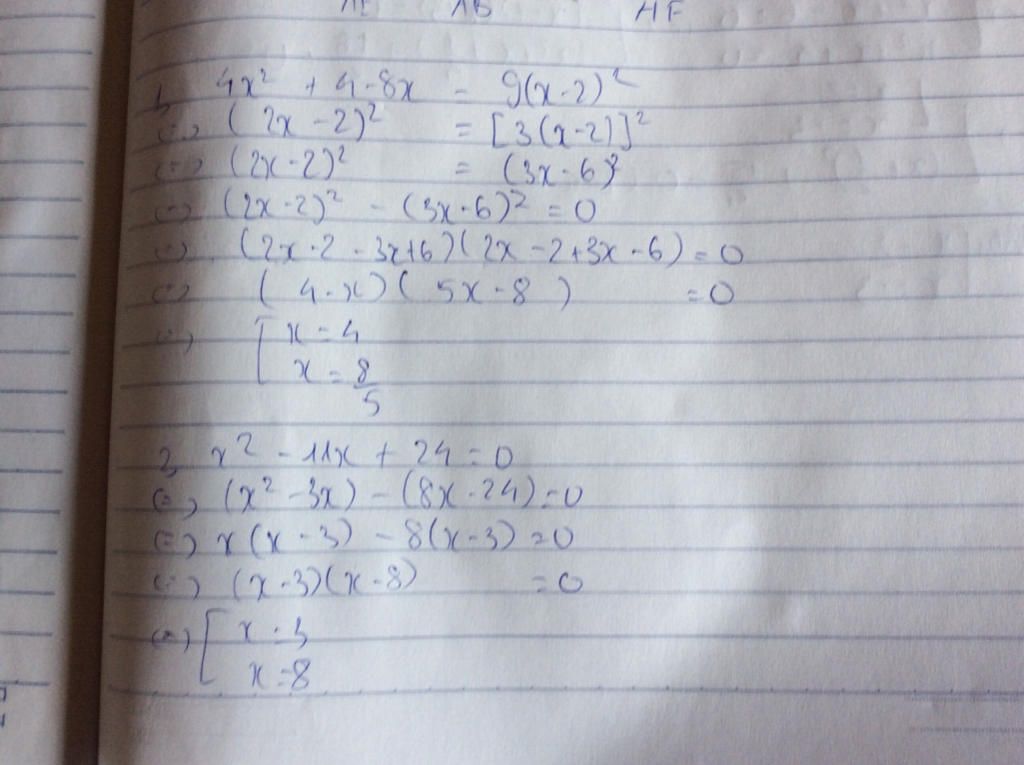 HF
1, 4x² + 4 - 8x = 9(x-2)²
<=> (2x - 2)² = [3(x-2)]²
<=> (2x - 2)² = (3x - 6)²
<=> (2x - 2)² - (3x - 6)² = 0
<=> (2x - 2 - 3x + 6)(2x - 2 + 3x - 6) = 0
<=> (4 - x)(5x - 8) = 0
<=> [ x = 4
x = 8/5
2, x² - 11x + 24 = 0
<=> (x² - 3x) - (8x - 24) = 0
<=> x(x - 3) - 8(x - 3) = 0
<=> (x - 3)(x - 8) = 0
<=> [ x = 3
x = 8